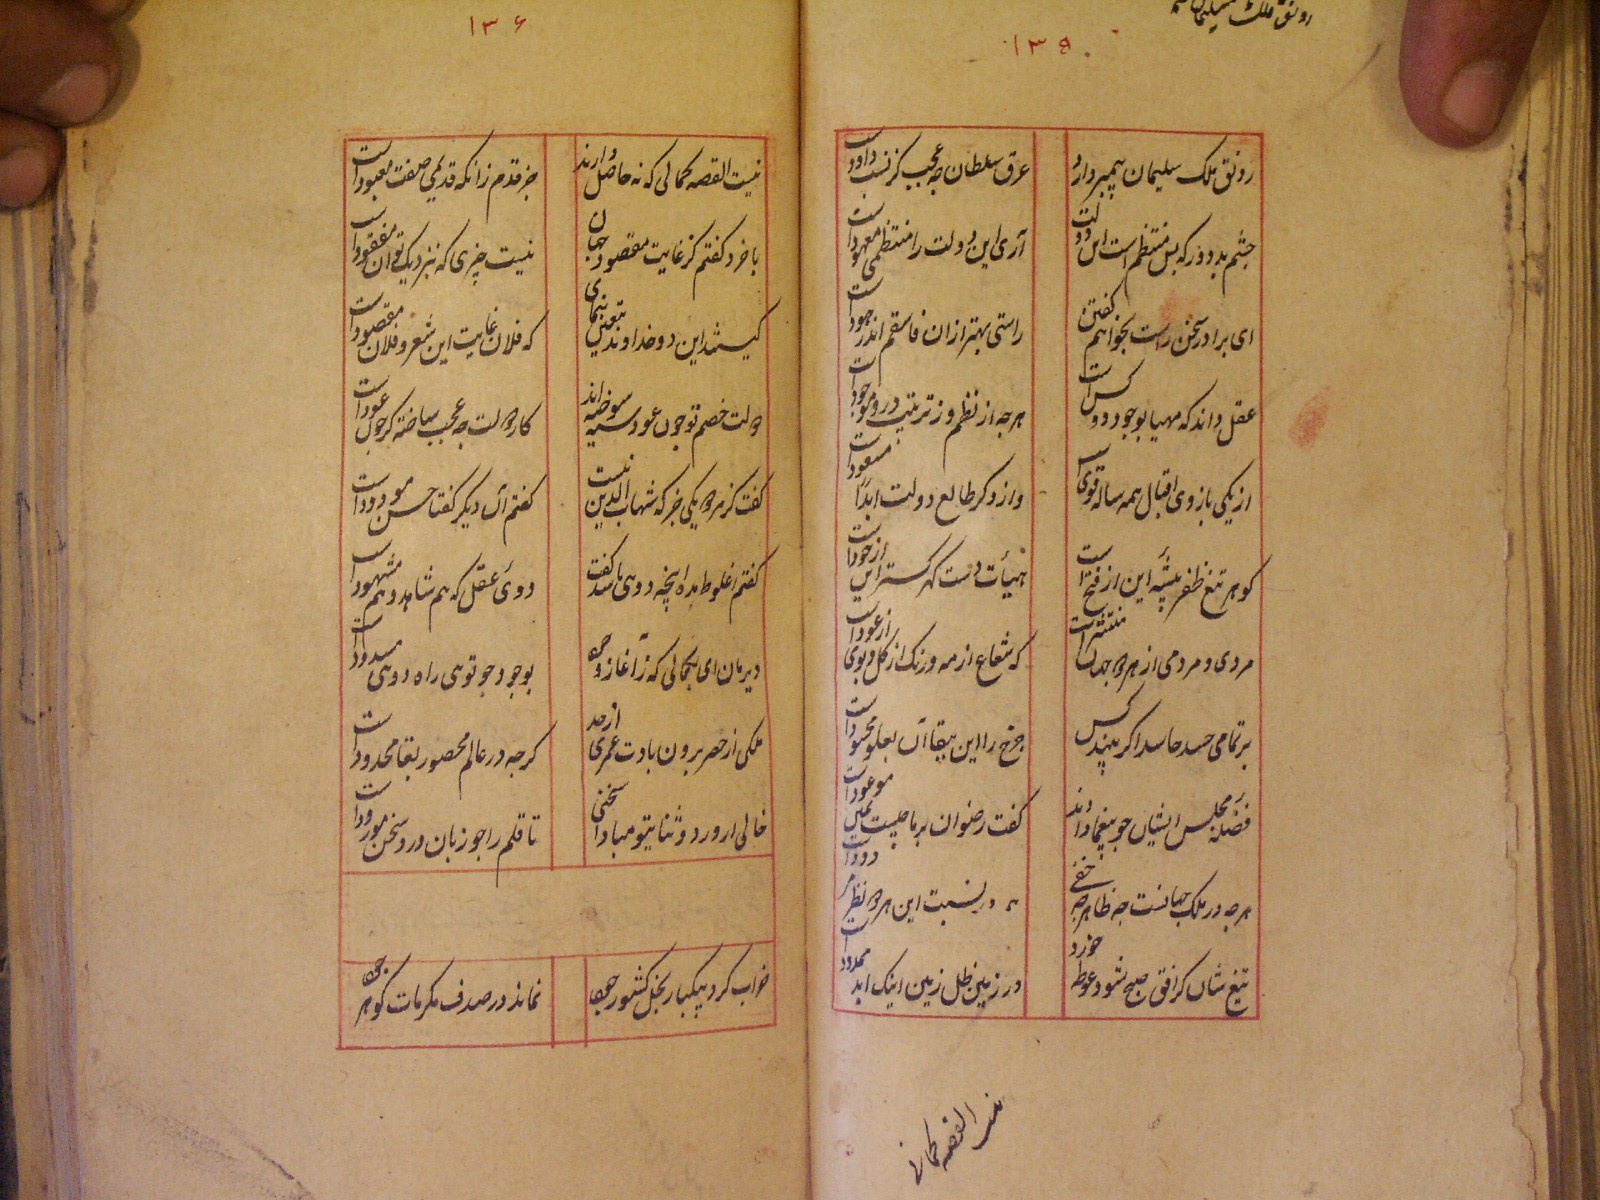 رونق ملک سلیمان
۱۳۵
رونق ملک سلیمان پیمبر دارد عرق سلطان چه عجب کز نسب داود است
چشم بد دور که بس منتظم است این دولت آری این دولت را منتظمی معهود است
ای برادر سخن راست بخواهم گفتن راستی بهتر از آن فاستقم اندر هود است
عقل داند که مهیا بوجود دو کس است هرچه از نظم وز ترتیب درو موجود است
از یکی بازوی اقبال همه ساله قوی است واز دگر طالع دولت ابدا مسعود است
کوهر تیغ ظفر پیشه این از فتح است هیأت دست کهر کستر این از جود است
مردی و مردمی از هردو جهان منتشر است که شعاع از مه و رنگ از گل و بوی از عود است
بر تمامی حسد حاسد اگر بیند کس چرخ را این ببقا آن بعلو محسود است
فضله مجلس ایشان چو بیغما دادند گفت رضوان بر ما چیست همین موعود است
هرچه در ملک جهانست چه ظاهر چه خفی در نسبت این هردو نظر
تیغ شان گر افق صبح شود غوطه خورد در زمین ظل زمین اینک ابد ممدود است
نیست القصه کمالی
۱۳۶
نیست القصه کمالی که نه حاصل دارند جز قدم زانکه قدیمی صفت معبود است
با خرد گفتم کز غایت مقصود جهان نیست چیزی که بنزدیک تو آن مفقود است
کیستند این دو خداوند بتعیین بنمای که فلان غایت این شعر و فلان مقصود است
دولت خصم تو چون عود سیه سوخته اند کار دولت چه عجب ساخته گر چون عود است
گفت کز هر دو یکی جز که شهاب الدین نیست گفتم آن دیگر گفتا حسن مودود است
گفتم اغلوطه مده اینچه دویی باشد گفت دویی عقل که هم شاهد و هم مشهود است
دیر مان ای بکمالی که ز آغاز وجود بوجود چو تویی راه دویی مسدود است
ملکی از حصر برون بادت عمری از حد گرچه در عالم محصور بقا محدود است
خالی از ورد و ثنای تو مبادا سخنی تا قلم را چو زبان ورد سخن مورود است
خواب کرد بیکبار بخل کشور جود نماند در صدف مکرمات گوهر جود